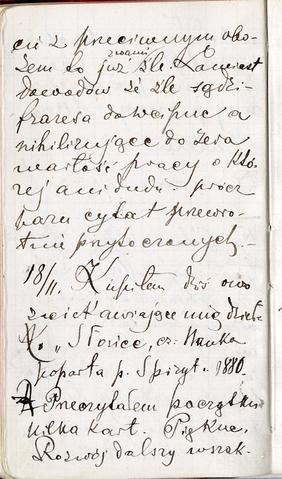 cu z przeciwnym obo-
zem to już źle. Zamiast
dowodów że źle sądzi-
frazesa dowcipne a
nihilizujące do zera
wartość pracy o któ-
rej ani dudu prócz
paru cytat przewro-
tnie przytoczonych. -
18/II. Kupiłem dziś owo
mię dzieł-
ko "Słońce, cz: Nauka
poparta p. Spiryt." 1880.
Przeczytałem początku
kilka kart. Piękne.
Rozwój dalszy wszak-